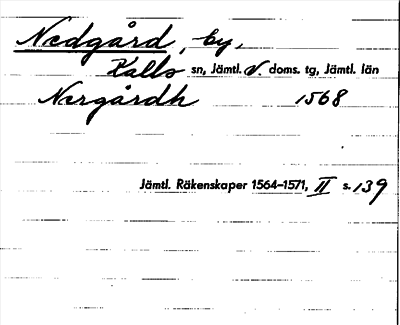 Nedgård, by,
Kalls sn, Jämtl. V. doms. tg, Jämtl. län
Nergårdh 1568
Jämtl. Räkenskaper 1564–1571, II s. 139